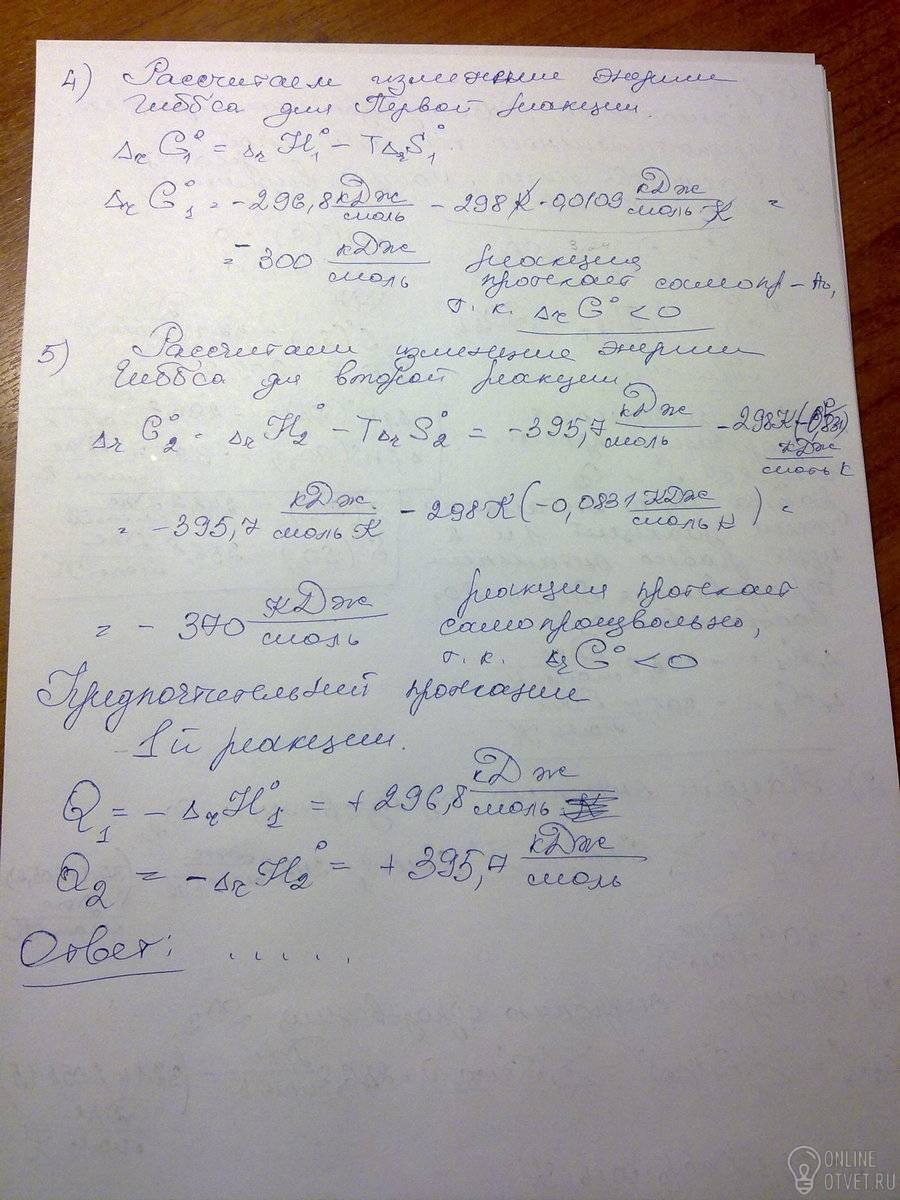 4) Рассчитаем изменение энергии
Гиббса для Первой реакции.
ΔrG₁° = ΔrH₁° − TΔrS₁°
ΔrG₁° = −296,8 кДж/моль − 298 K · 0,0109 кДж/моль·K =
= −300 кДж/моль реакция
протекает самопр-но,
т. к. ΔrG° < 0
5) Рассчитаем изменение энергии
Гиббса для второй реакции
ΔrG₂° = ΔrH₂° − TΔrS₂° = −395,7 кДж/моль − 298K(−0,0831) кДж/моль K
= −395,7 кДж/моль K − 298K(−0,0831 кДж/моль K) =
= − 370 кДж/моль реакция протекает
самопроизвольно,
т. к. ΔrG° < 0
Предпочтительней протекание
1й реакции.
Q₁ = − ΔrH₁° = + 296,8 кДж/моль
Q₂ = − ΔrH₂° = + 395,7 кДж/моль
Ответ: . . . . .
ONLINE
OTVET.RU